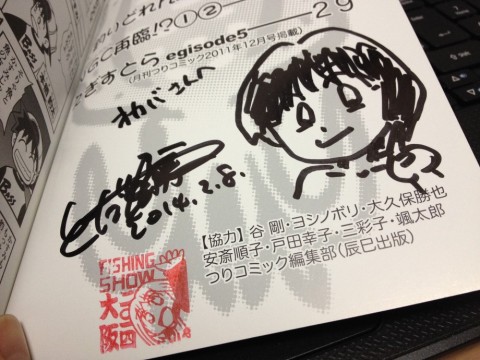 29
GC再臨!?①②
egisode5
(月刊つりコミック2011年12月号掲載)
わかばさんへ
2014.2.8.
【協力】谷 剛・ヨシノボリ・大久保勝也
安斎順子・戸田幸子・三彩子・颯太郎
つりコミック編集部(辰巳出版)
FISHING
SHOW
大阪
二〇一四
Bass
Bass